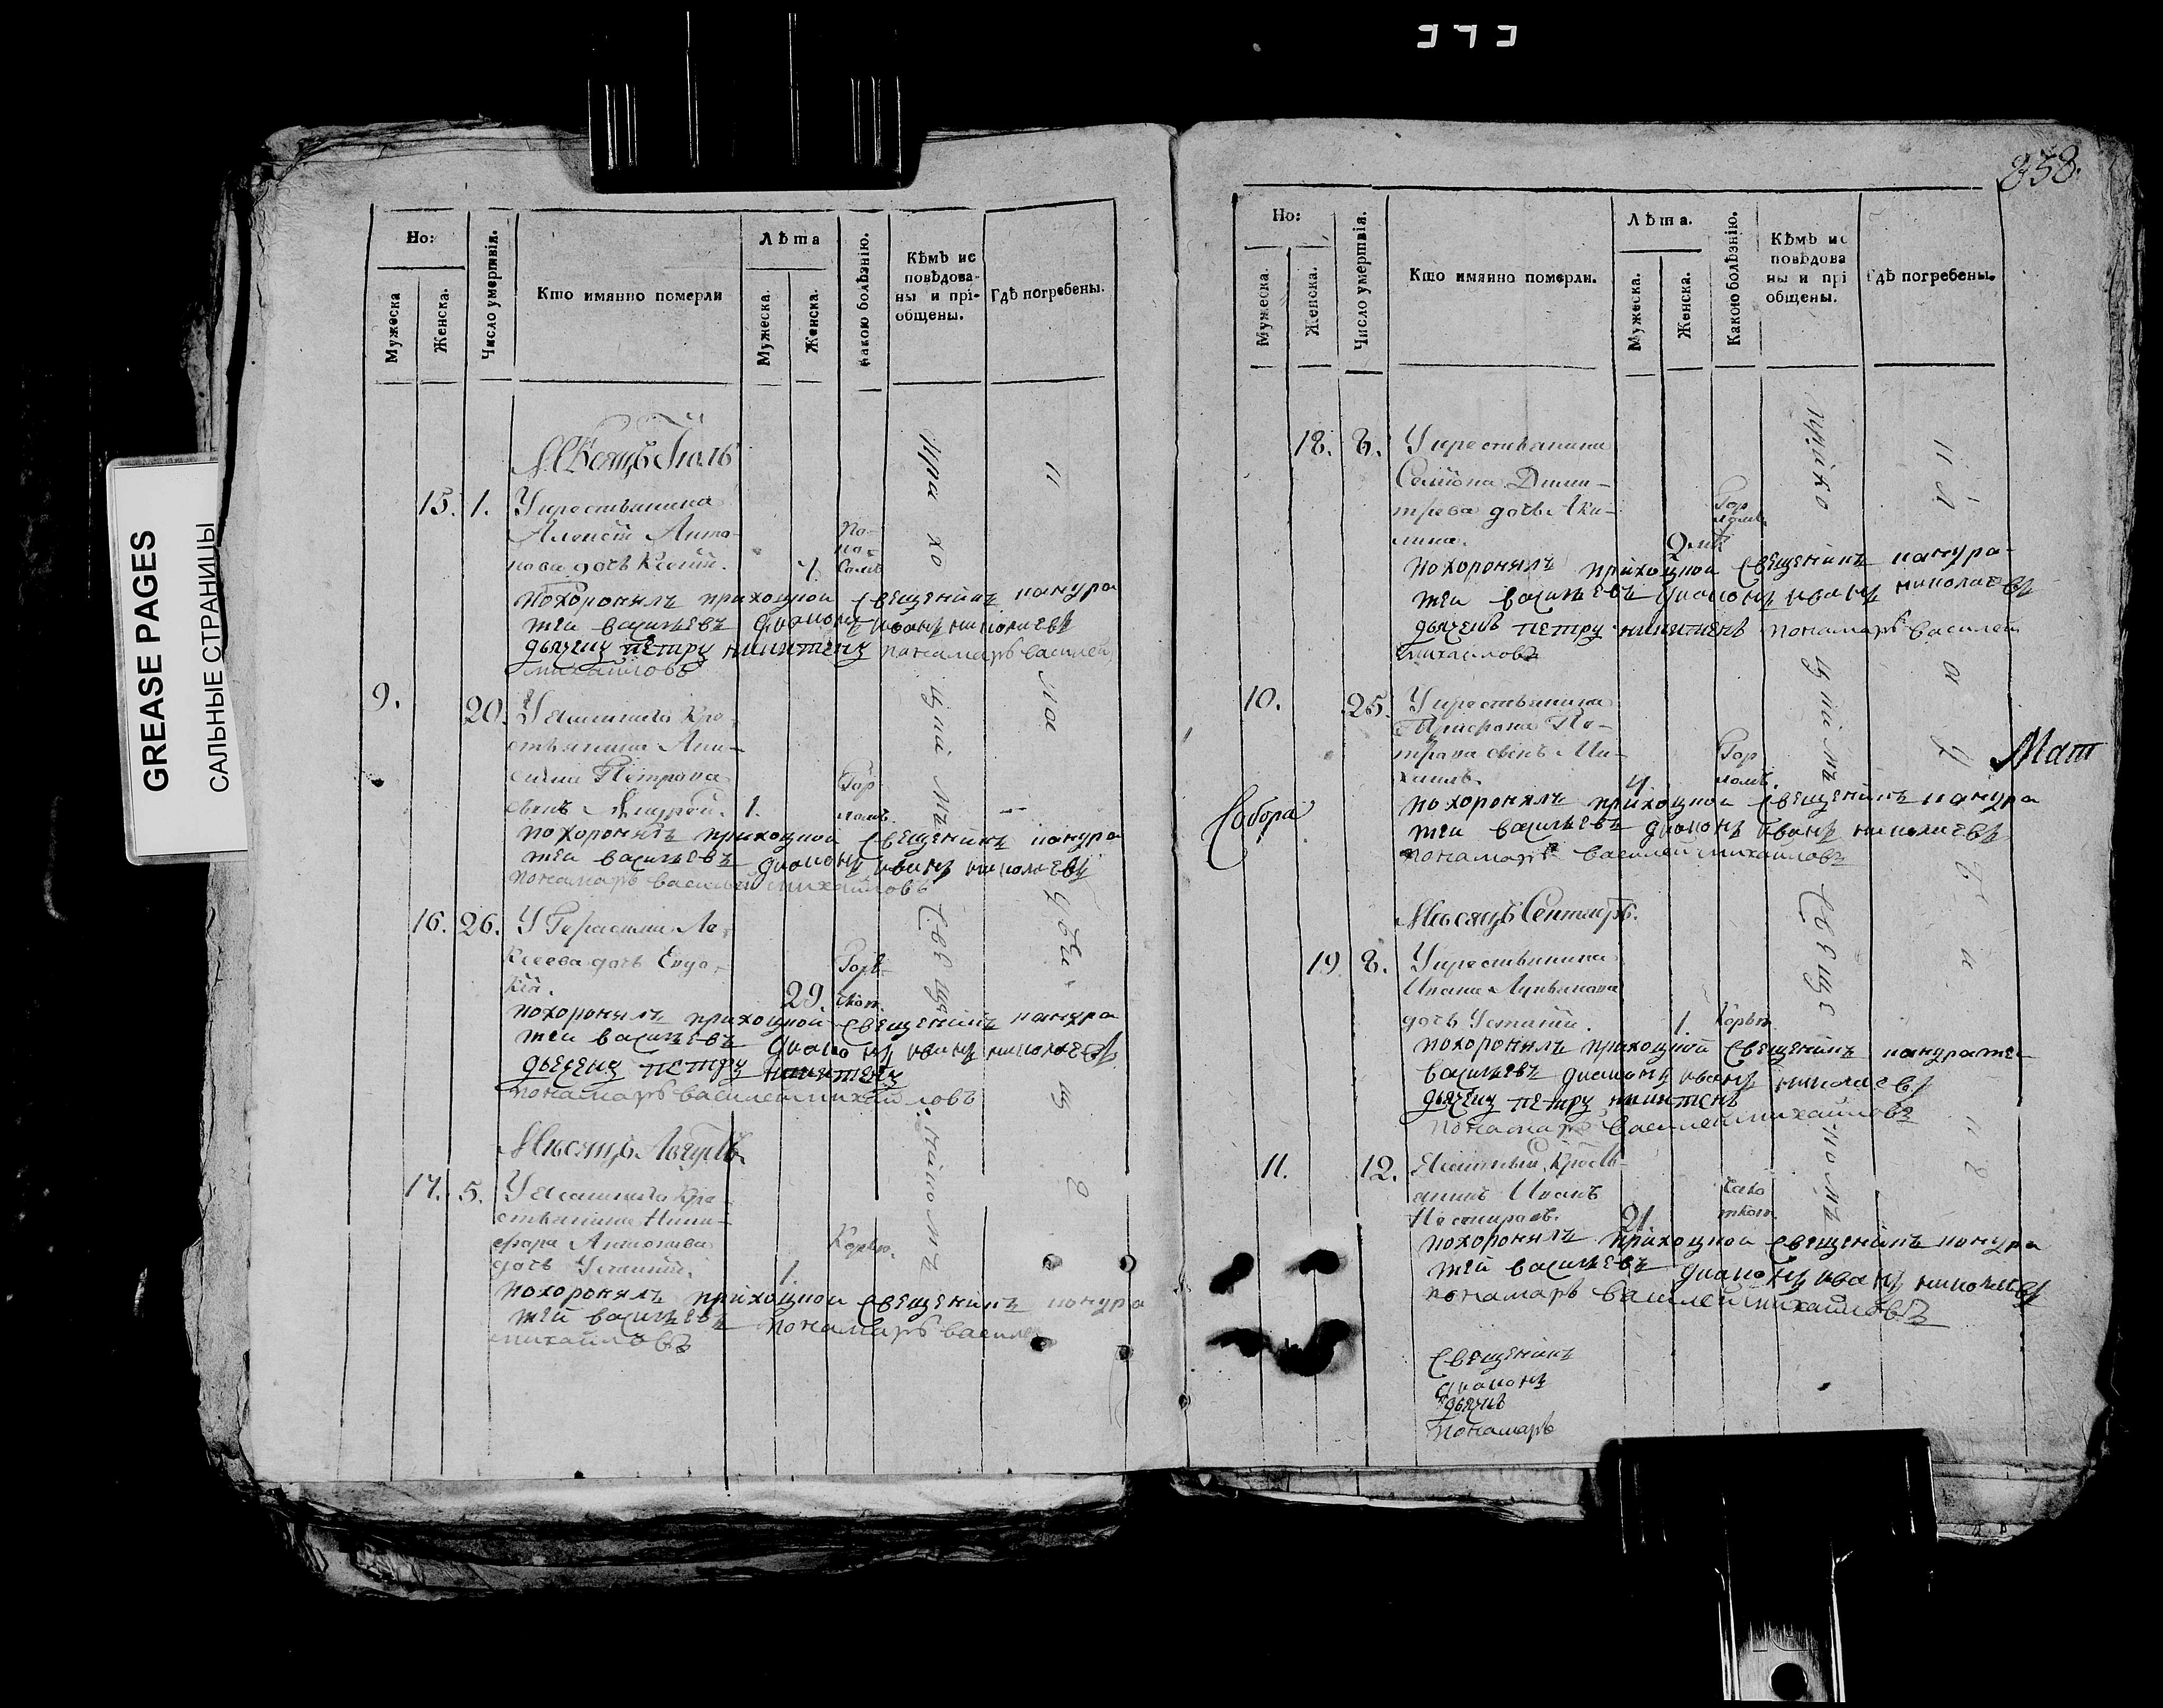 GREASE PAGES
САЛЬНЫЕ СТРАНИЦЫ
Но:
Мужеска
Женска.
Число умертвія.
Кто имянно померли
Лѣта
Мужеска.
Женска.
какою болѣзнію.
Кѣмъ ис
повѣдова-
ны и прі-
общены.
Гдѣ погребены.
Мѣсяцъ Іюль
15. 1. У крестьянина
Алексѣя Анто-
нова дочь Ксенія.
похоронялъ приходной священикъ кандра
теи васильевъ диаконъ иванъ николаевъ
дьячекъ петръ никитенъ понамарь василей
михайловъ
9. 20. У ясашнаго кре
стьянина
Петрова
сынъ 1. Гор
ломъ.
похоронялъ приходной священикъ кандра
теи васильевъ диаконъ иванъ николаевъ
понамарь василей михайловъ
16. 26. У Герасима Ле
ксеева дочь Евдо
кія. 29. Горя
чкою.
похоронялъ приходной священикъ кандра
теи васильевъ диаконъ иванъ николаевъ
дьячекъ петръ никитенъ
понамарь василей михайловъ
Мѣсяцъ Августъ.
17. 5. У ясашнаго кре
стьянина Ники-
фора Антонова
дочь Устинія. 1. Корью.
похоронялъ приходной священикъ кандра
теи васильевъ понамарь василей
михайловъ
858.
Но:
Мужеска.
Женска.
Число умертвія.
Кто имянно померли.
Лѣта.
Мужеска.
Женска.
Какою болѣзнію.
Кѣмъ ис
повѣдова
ны и прі
общены.
Гдѣ погребены.
18. 8. У крестьянина
Семіона Дмит-
трева дочь Аку-
лина. Гор
ломъ.
похоронялъ приходной священикъ кандра-
теи васильевъ диаконъ иванъ николаевъ
дьячекъ петръ никитенъ понамарь василей
михаиловъ
10. 25. У крестьянина
Трифона Пе-
трова сынъ Ми-
хаилъ. 4. Гор
ломъ.
похоронялъ приходной священикъ кандра
теи васильевъ диаконъ иванъ николаевъ
понамарь василей михаиловъ
Собора
Мат
Мѣсяцъ Сентябрь.
19 8. У крестьянина
Ивана Лукьянова
дочь Устинія. 1. Корью.
похоронялъ приходной священикъ кандратеи
васильевъ диаконъ иванъ николаевъ
дьячекъ петръ никитенъ
понамарь василей михаиловъ
11. 12. Ясашный кресть-
янинъ Иванъ
21.
похоронялъ приходной священикъ кандра
теи васильевъ диаконъ иванъ николаевъ
понамарь василей михаиловъ
священикъ
диаконъ
дьячекъ
понамарь